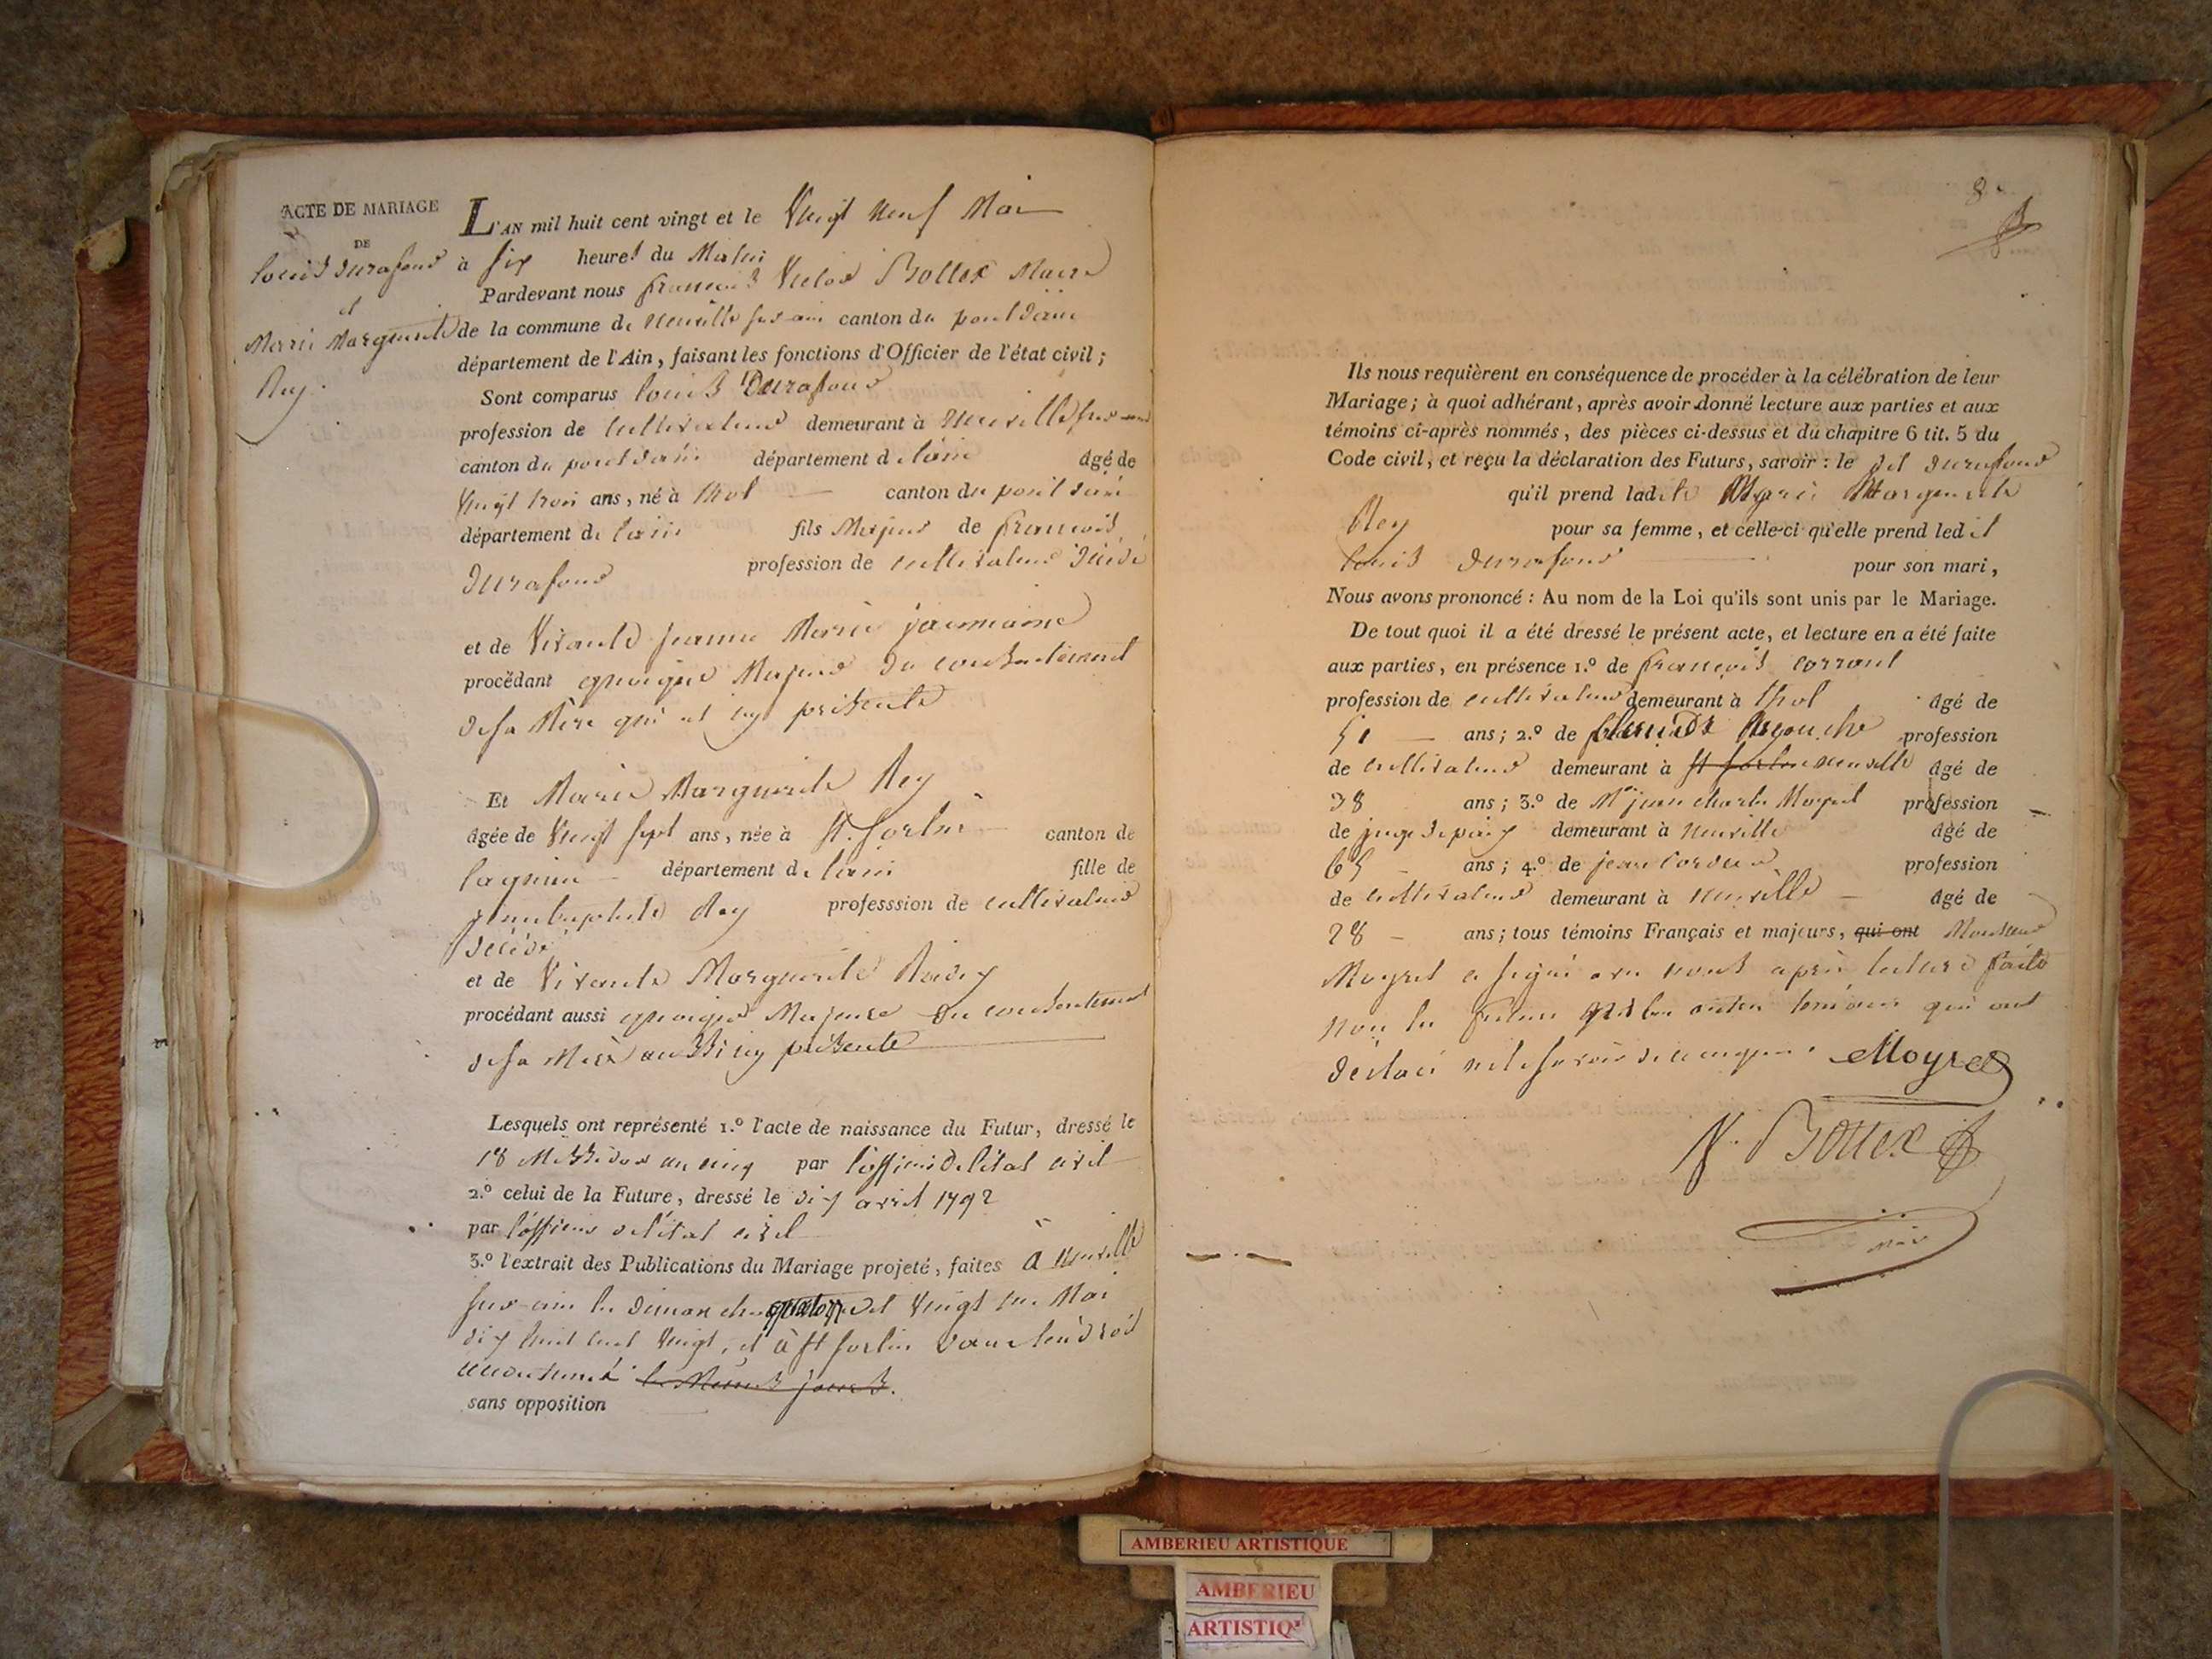 ACTE DE MARIAGE
DE
louis Durafour
et
Marie Marguerite
Rey
L'AN mil huit cent vingt et le Vingt Neuf Mai
à six heures du Matin
Pardevant nous françois Victor Bottex Maire
de la commune de Neuville sur ain canton du pont d'ain
département de l'Ain, faisant les fonctions d'Officier de l'état civil ;
Sont comparus louis Durafour
profession de cultivateur demeurant à Neuville sur ain
canton du pont d'ain département de l'ain âgé de
Vingt trois ans, né à thol canton du pont d'ain
département de l'ain fils Majeur de françois
Durafour profession de cultivateur décédé
et de Vivante jeanne Marie
procédant quoique Majeur du consentement
de sa Mère qui est icy présente
Et Marie Marguerite Rey
âgée de Vingt sept ans, née à St. sorlin canton de
lagnieu département de l'ain fille de
jean baptiste Rey professsion de cultivateur
décédé
et de Vivante Marguerite
procédant aussi quoique Majeure du consentement
de sa Mère aussi icy présente
Lesquels ont représenté 1.º l'acte de naissance du Futur, dressé le
18 Messidor an cinq par l'officier de l'état civil
2.º celui de la Future, dressé le dix avril 1792
par l'officier de l'état civil
3.º l'extrait des Publications du Mariage projeté, faites à Neuville
sur ain les dimanches quatorze et Vingt un Mai
dix huit cent Vingt, et à St sorlin dans l'endroit
accoutumé les Mêmes jours.
sans opposition
8
Ils nous requièrent en conséquence de procéder à la célébration de leur
Mariage ; à quoi adhérant, après avoir donné lecture aux parties et aux
témoins ci-après nommés, des pièces ci-dessus et du chapitre 6 tit. 5 du
Code civil, et reçu la déclaration des Futurs, savoir : le dit Durafour
qu'il prend ladite Marie Marguerite
Rey pour sa femme, et celle-ci qu'elle prend ledit
louis Durafour pour son mari,
Nous avons prononcé : Au nom de la Loi qu'ils sont unis par le Mariage.
De tout quoi il a été dressé le présent acte, et lecture en a été faite
aux parties, en présence 1.º de françois
profession de cultivateur demeurant à thol âgé de
51 ans ; 2.º de Claude profession
de cultivateur demeurant à St sorlin Neuville âgé de
38 ans ; 3.º de Mr jean charles Moyret profession
de juge de paix demeurant à Neuville âgé de
65 ans ; 4.º de jean profession
de cultivateur demeurant à Neuville âgé de
28 ans ; tous témoins Français et majeurs, qui ont Monsieur
Moyret a signé avec nous après lecture faite
non les futurs et les autres témoins qui ont
déclaré ne le savoir de ce enquis. Moyret
V. Bottex
AMBERIEU ARTISTIQUE
AMBERIEU
ARTISTIQ